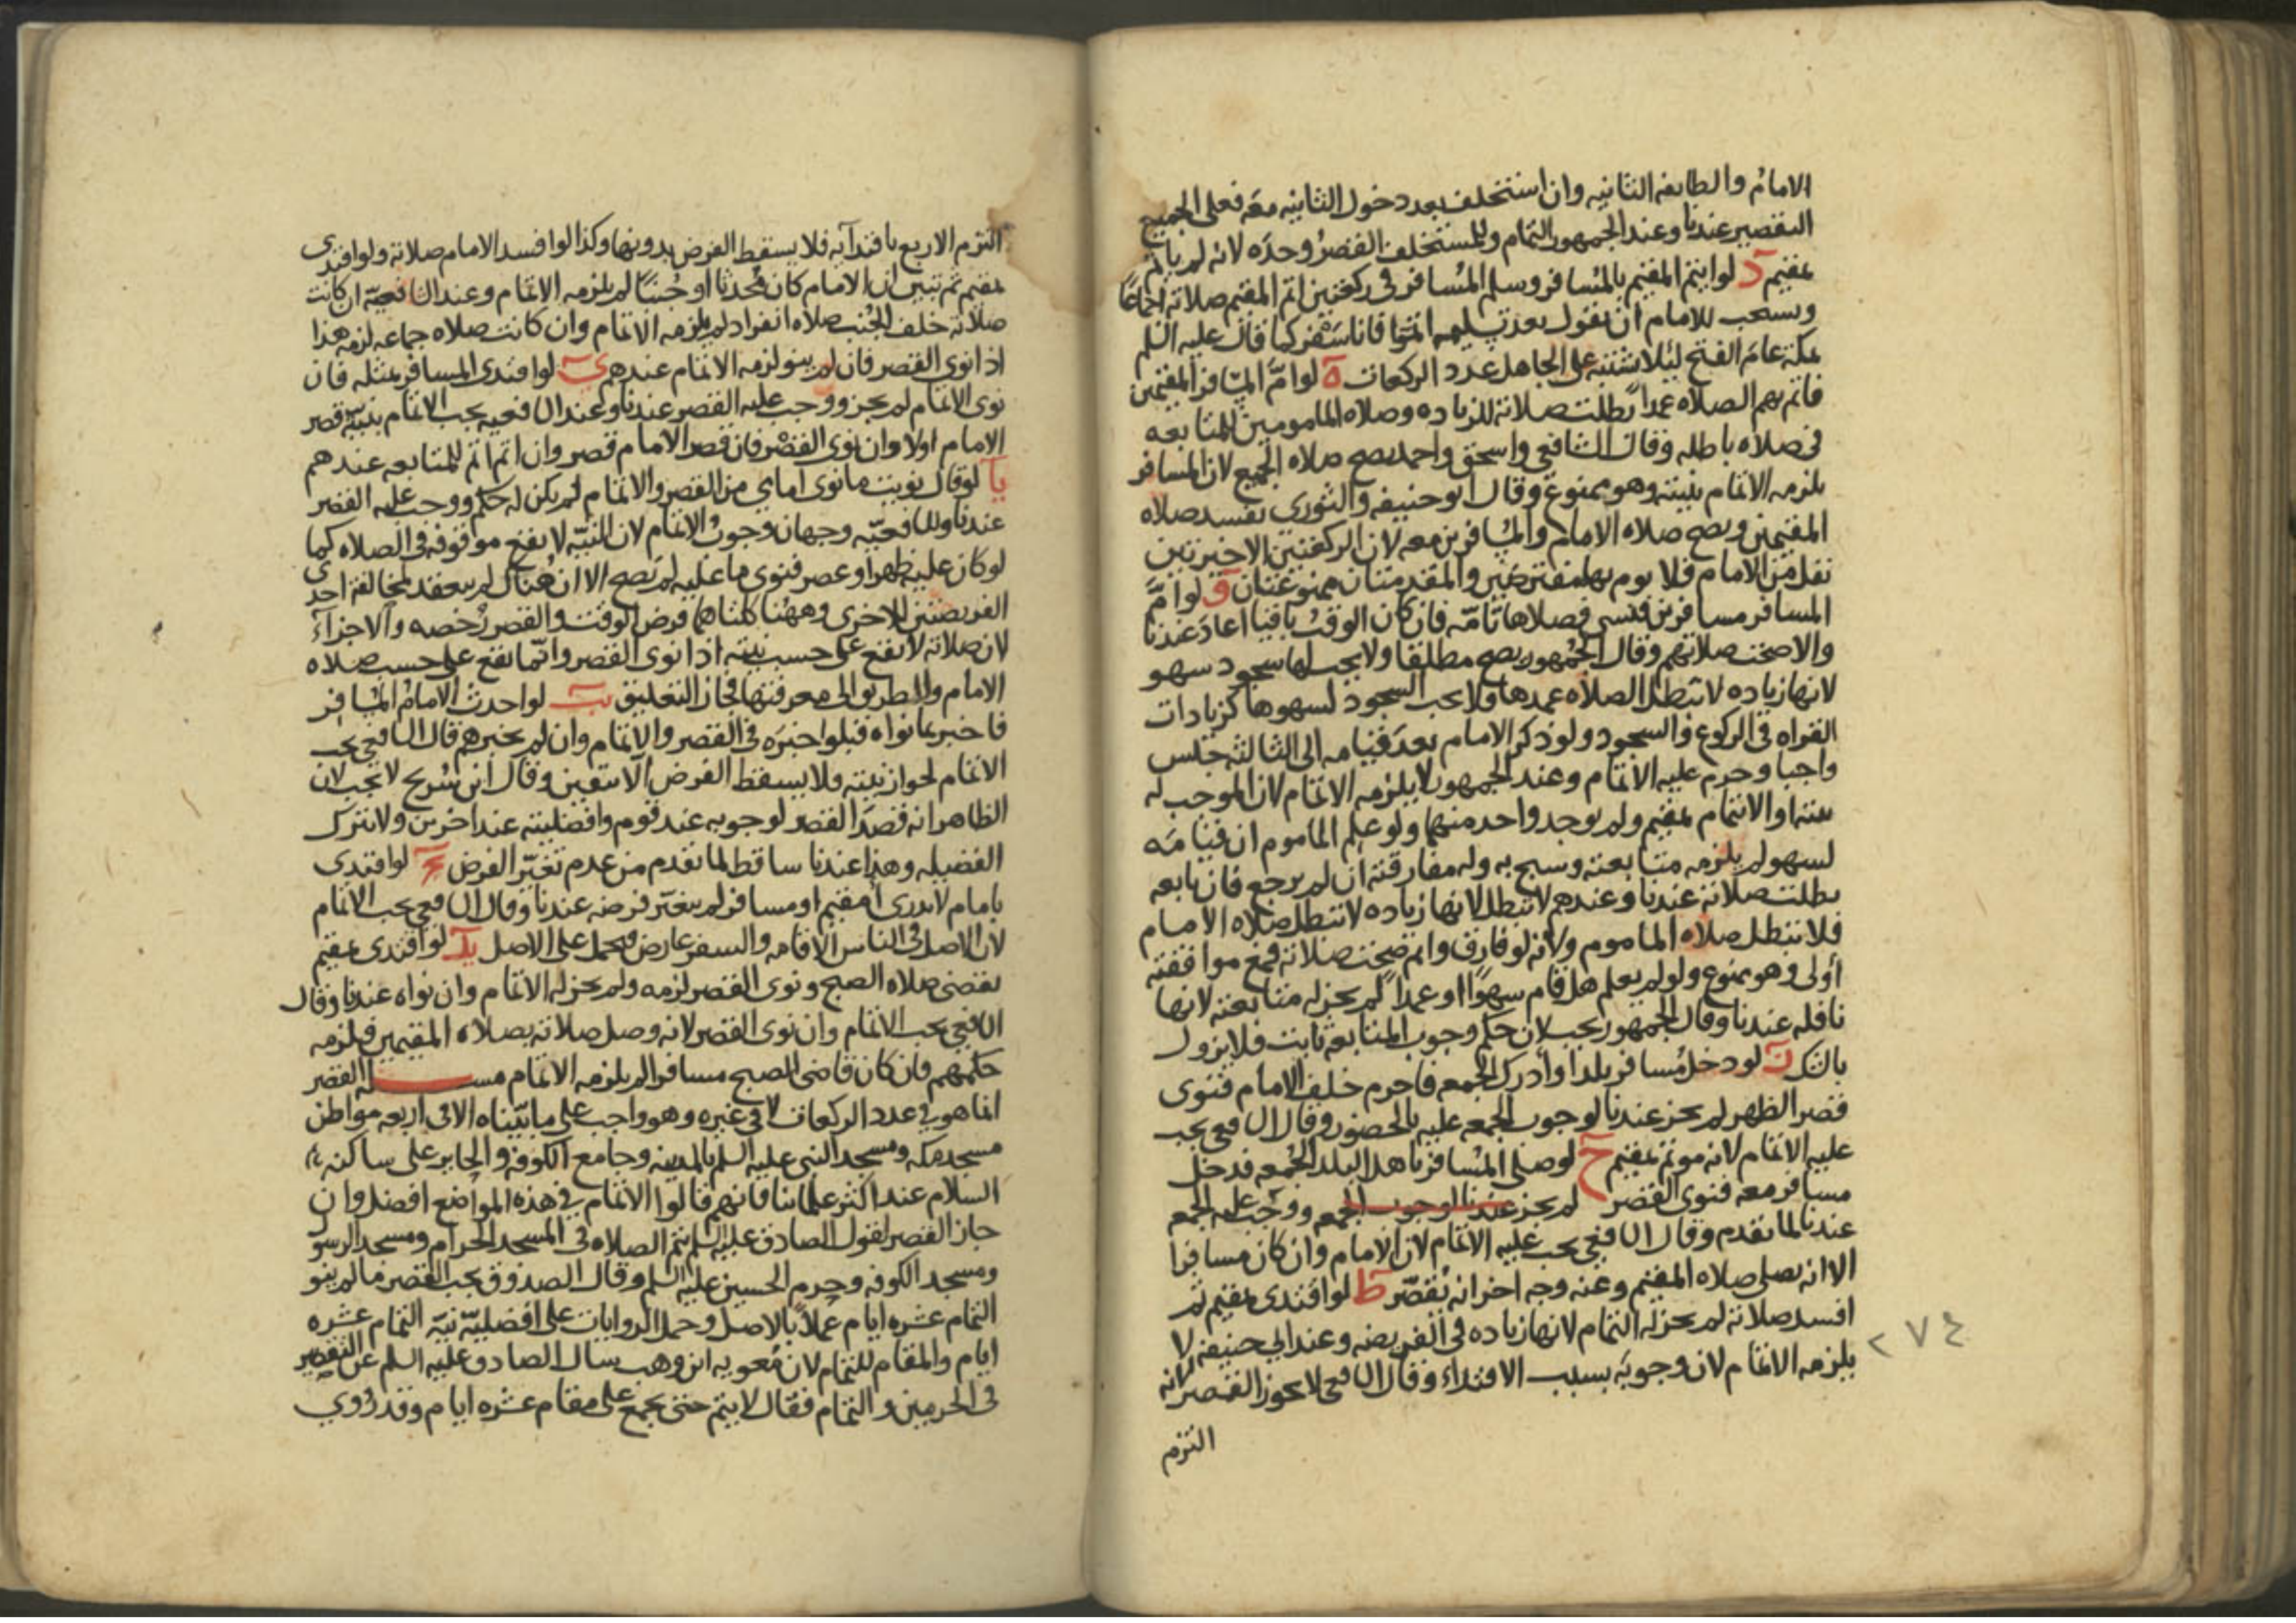 الامام والطايفه الثانيه وان استخلف بعد دخول الثانيه معه فعلى الجميع
التقصير عندنا وعند الجمهور التمام وللمستخلف القصر وحده لانه لم ياتم
بمقيم د لو ايتم المقيم بالمسافر وسلم المسافر في ركعتين اتم المقيم صلاته اجماعا
ويستحب للامام ان يقول بعد تسليمه اتموا فانا سفر كما قال عليه السلم
بمكة عام الفتح ليلا يشتبه على الجاهل عدد الركعات ه لو ام المسافر المقيمين
فاتم بهم الصلاه عمدا بطلت صلاته للزياده وصلاه المامومين للمتابعه
في صلاه باطله وقال الشافعي واسحق واحمد يصح صلاه الجميع لان المسافر
يلزمه الاتمام بنيته وهو ممنوع وقال ابو حنيفه والثوري تفسد صلاه
المقيمين ويصح صلاه الامام والمسافرين معه لان الركعتين الاخيرتين
نفل من الامام فلا يوم بها مفترضين والمقدمتان ممنوعتان و لو ام
المسافر مسافرين فنسي فصلاها تامه فان كان الوقت باقيا اعاد عندنا
والا صحت صلاتهم وقال الجمهور يصح مطلقا ولا يجب لها سجود سهو
لانها زياده لا تبطل الصلاه عمدها ولا يجب السجود لسهوها كزيادات
القراه في الركوع والسجود ولو ذكر الامام بعد قيامه الى الثالثه جلس
واجبا وحرم عليه الاتمام وعند الجمهور لا يلزمه الاتمام لان الموجب له
نيته او الايتمام بمقيم ولم يوجد واحد منهما ولو علم الماموم ان قيامه
لسهو لم يلزمه متابعته وسبح به وله مفارقته ان لم يرجع فان تابعه
بطلت صلاته عندنا وعندهم لا تبطل لانها زياده لا تبطل صلاه الامام
فلا تبطل صلاه الماموم ولانه لو فارق واتم صحت صلاته فمع موافقته
اولى وهو ممنوع ولو لم يعلم هل قام سهوا او عمدا لم يجز له متابعته لانها
نافله عندنا وقال الجمهور يجب لان حكم وجوب المتابعة ثابت فلا يزول
بالشك ز لو دخل مسافر بلدا وادرك الجمعه فاحرم خلف الامام فنوى
قصر الظهر لم يجز عندنا لوجوب الجمعه عليه بالحضور وقال الشافعي يجب
عليه الاتمام لانه موتم بمقيم ح لو صلى المسافر باهل البلد الجمعه فدخل
مسافر معه فنوى القصر لم يجز عندنا لوجوب الجمعه ووجب عليه الجمع
عندنا لما تقدم وقال الشافعي يجب عليه الاتمام لان الامام وان كان مسافرا
الا انه يصلي صلاه المقيم وعنه وجه اخر انه يقصر ط لو اقتدى بمقيم ثم
افسد صلاته لم يجز له التمام لانها زياده في الفريضه وعند ابي حنيفه لا
يلزمه الاتمام لان وجوبه بسبب الاقتداء وقال الشافعي لا يجوز القصر لانه
التزم
٢٧٤
التزم الاربع باقتدآيه فلا يسقط الفرض بدونها وكذا لو افسد الامام صلاته ولو اقتدى
بمقيم ثم تبين ان الامام كان محدثا او جنبا لم يلزمه الاتمام وعند الشافعيه ان كانت
صلاته خلف الجنب صلاه انفراد لم يلزمه الاتمام وان كانت صلاه جماعه لزمه هذا
اذا نوى القصر فان لم ينو لزمه الاتمام عندهم ي لو اقتدى المسافر بمثله فان
نوى الاتمام لم يجز ووجب عليه القصر عندنا وعند الشافعيه يجب الاتمام بنيته قصر
الامام اولا وان نوى القصر فان قصر الامام قصر وان اتم اتم للمتابعه عندهم
يا لو قال نويت ما نوى امامي من القصر والاتمام لم يكن له حكم ووجب عليه القصر
عندنا وللشافعيه وجهان وجوب الاتمام لان النيه لا يقع موقوفه في الصلاه كما
لو كان عليه ظهر او عصر فنوى ما عليه لم يصح الا ان هناك لم ينعقد لمخالفة احدى
الفريضتين للاخرى وههنا كلتاهما فرض الوقت والقصر رخصه والاجزآء
لان صلاته لا يقع على حسب نيته اذا نوى القصر وانما يقع على حسب صلاه
الامام ولا طريق الى معرفتها فجاز التعليق يب لو احدث الامام المسافر
فاخبر بما نواه قبلوا خبره في القصر والاتمام وان لم يخبرهم قال الشافعي يجب
الاتمام لجواز نيته ولا يسقط الفرض الا بيقين وقال ابن سريح لا يجب لان
الظاهر انه قصد القصر لوجوبه عند قوم وافضليته عند اخرين ولا يترك
الفضيله وهذا عندنا ساقط لما تقدم من عدم تغير الفرض يج لو اقتدى
بامام لا يدرى امقيم او مسافر لم يتغير فرضه عندنا وقال الشافعي يجب الاتمام
لان الاصل في الناس الاقامه والسفر عارض فيحمل على الاصل يد لو اقتدى بمقيم
يقضي صلاه الصبح ونوى القصر لزمه ولم يجز له الاتمام وان نواه عندنا وقال
الشافعي يجب الاتمام وان نوى القصر لانه وصل صلاته بصلاه المقيمين فيلزمه
حكمهم فان كان قاضي الصبح مسافرا لم يلزمه الاتمام مسـله القصر
انما هو في عدد الركعات لا في غيره وهو واجب على ما بيناه الا في اربعه مواطن
مسجد مكه ومسجد النبي عليه السلم بالمدينه وجامع الكوفه والحاير على ساكنه
السلام عند اكثر علمائنا فانهم قالوا الاتمام في هذه المواضع افضل وان
جاز القصر لقول الصادق عليه السلم يتم الصلاه في المسجد الحرام ومسجد الرسول
ومسجد الكوفه وحرم الحسين عليه السلم وقال الصدوق يجب القصر ما لم ينو
التمام عشره ايام عملا بالاصل وحمل الروايات على افضليه نيه التمام عشره
ايام والمقام للتمام لان معويه ابن وهب سال الصادق عليه السلم عن التقصير
في الحرمين والتمام فقال لا يتم حتى يجمع على مقام عشره ايام وقد روي